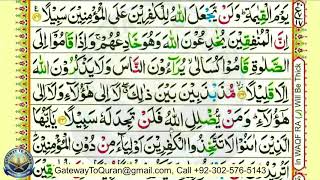 يَوْمَ الْقِيٰمَةِ ؕ وَلَنْ يَّجْعَلَ اللّٰهُ لِلْكٰفِرِيْنَ عَلَى الْمُؤْمِنِيْنَ سَبِيْلًا
اِنَّ الْمُنٰفِقِيْنَ يُخٰدِعُوْنَ اللّٰهَ وَهُوَ خَادِعُهُمْ ۚ وَاِذَا قَامُوْۤا اِلَى
الصَّلٰوةِ قَامُوْا كُسَالٰى ۙ يُرَآءُوْنَ النَّاسَ وَلَا يَذْكُرُوْنَ اللّٰهَ
اِلَّا قَلِيْلًا مُّذَبْذَبِيْنَ بَيْنَ ذٰلِكَ ۖ لَاۤ اِلٰى هٰۤؤُلَآءِ وَلَاۤ اِلٰى
هٰۤؤُلَآءِ ؕ وَمَنْ يُّضْلِلِ اللّٰهُ فَلَنْ تَجِدَ لَهٗ سَبِيْلًا يٰۤاَيُّهَا
الَّذِيْنَ اٰمَنُوْا لَا تَتَّخِذُوا الْكٰفِرِيْنَ اَوْلِيَآءَ مِنْ دُوْنِ الْمُؤْمِنِيْنَ
In WAQF RA (ر) Will Be Thick
GatewayToQuran@gmail.com, Call +92-302-576-5143